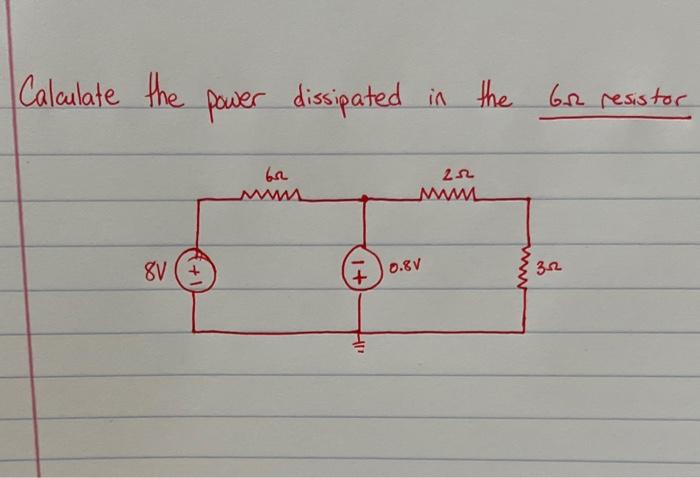 Calculate the power dissipated in the 6Ω resistor
6Ω 2Ω
8V + - - + 0.8V 3Ω